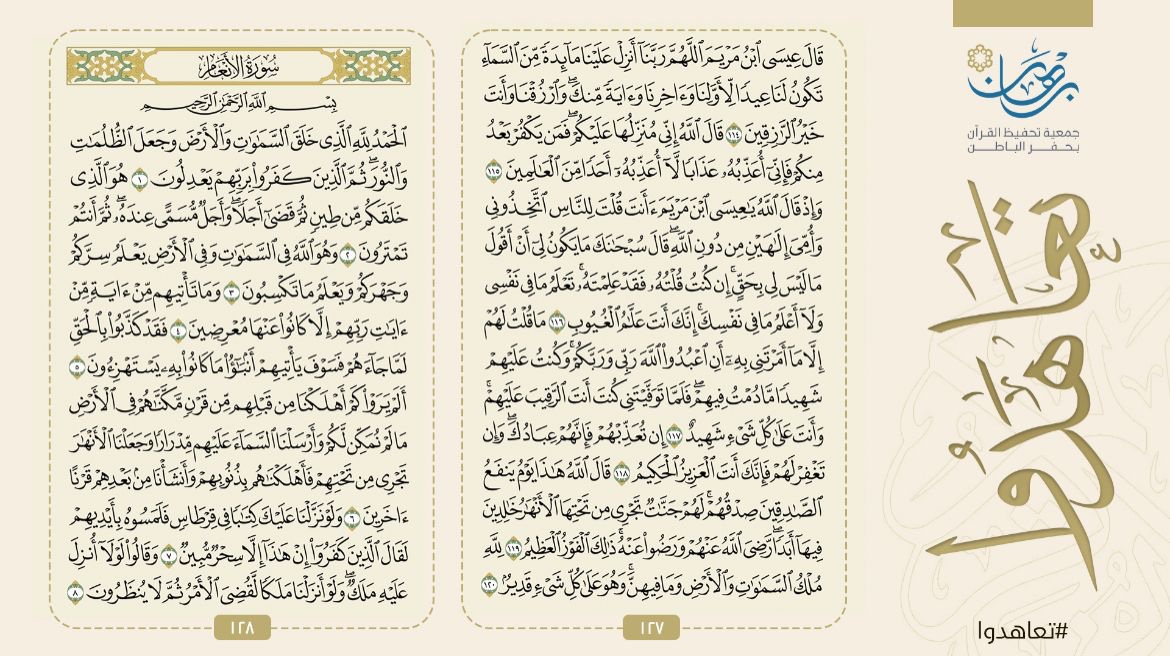 برهان
جمعية تحفيظ القرآن
بحفر الباطن
تعاهدوا
#تعاهدوا
قَالَ عِيسَى ٱبْنُ مَرْيَمَ ٱللَّهُمَّ رَبَّنَآ أَنزِلْ عَلَيْنَا مَآئِدَةً مِّنَ ٱلسَّمَآءِ
تَكُونُ لَنَا عِيدًا لِّأَوَّلِنَا وَءَاخِرِنَا وَءَايَةً مِّنكَۖ وَٱرْزُقْنَا وَأَنتَ
خَيْرُ ٱلرَّٰزِقِينَ ١١٤ قَالَ ٱللَّهُ إِنِّي مُنَزِّلُهَا عَلَيْكُمْۖ فَمَن يَكْفُرْ بَعْدُ
مِنكُمْ فَإِنِّيٓ أُعَذِّبُهُۥ عَذَابًا لَّآ أُعَذِّبُهُۥٓ أَحَدًا مِّنَ ٱلْعَٰلَمِينَ ١١٥
وَإِذْ قَالَ ٱللَّهُ يَٰعِيسَى ٱبْنَ مَرْيَمَ ءَأَنتَ قُلْتَ لِلنَّاسِ ٱتَّخِذُونِي
وَأُمِّيَ إِلَٰهَيْنِ مِن دُونِ ٱللَّهِۖ قَالَ سُبْحَٰنَكَ مَا يَكُونُ لِيٓ أَنْ أَقُولَ
مَا لَيْسَ لِي بِحَقٍّۚ إِن كُنتُ قُلْتُهُۥ فَقَدْ عَلِمْتَهُۥۚ تَعْلَمُ مَا فِي نَفْسِي
وَلَآ أَعْلَمُ مَا فِي نَفْسِكَۚ إِنَّكَ أَنتَ عَلَّٰمُ ٱلْغُيُوبِ ١١٦ مَا قُلْتُ لَهُمْ
إِلَّا مَآ أَمَرْتَنِي بِهِۦٓ أَنِ ٱعْبُدُوا۟ ٱللَّهَ رَبِّي وَرَبَّكُمْۚ وَكُنتُ عَلَيْهِمْ
شَهِيدًا مَّا دُمْتُ فِيهِمْۖ فَلَمَّا تَوَفَّيْتَنِي كُنتَ أَنتَ ٱلرَّقِيبَ عَلَيْهِمْۚ
وَأَنتَ عَلَىٰ كُلِّ شَيْءٍ شَهِيدٌ ١١٧ إِن تُعَذِّبْهُمْ فَإِنَّهُمْ عِبَادُكَۖ وَإِن
تَغْفِرْ لَهُمْ فَإِنَّكَ أَنتَ ٱلْعَزِيزُ ٱلْحَكِيمُ ١١٨ قَالَ ٱللَّهُ هَٰذَا يَوْمُ يَنفَعُ
ٱلصَّٰدِقِينَ صِدْقُهُمْۚ لَهُمْ جَنَّٰتٌ تَجْرِي مِن تَحْتِهَا ٱلْأَنْهَٰرُ خَٰلِدِينَ
فِيهَآ أَبَدًاۖ رَّضِيَ ٱللَّهُ عَنْهُمْ وَرَضُوا۟ عَنْهُۚ ذَٰلِكَ ٱلْفَوْزُ ٱلْعَظِيمُ ١١٩ لِلَّهِ
مُلْكُ ٱلسَّمَٰوَٰتِ وَٱلْأَرْضِ وَمَا فِيهِنَّۚ وَهُوَ عَلَىٰ كُلِّ شَيْءٍ قَدِيرٌۢ ١٢٠
١٢٧
سُورَةُ الأَنْعَامِ
بِسْمِ ٱللَّهِ ٱلرَّحْمَٰنِ ٱلرَّحِيمِ
ٱلْحَمْدُ لِلَّهِ ٱلَّذِي خَلَقَ ٱلسَّمَٰوَٰتِ وَٱلْأَرْضَ وَجَعَلَ ٱلظُّلُمَٰتِ
وَٱلنُّورَۖ ثُمَّ ٱلَّذِينَ كَفَرُوا۟ بِرَبِّهِمْ يَعْدِلُونَ ١ هُوَ ٱلَّذِي
خَلَقَكُم مِّن طِينٍ ثُمَّ قَضَىٰٓ أَجَلًاۖ وَأَجَلٌ مُّسَمًّى عِندَهُۥۖ ثُمَّ أَنتُمْ
تَمْتَرُونَ ٢ وَهُوَ ٱللَّهُ فِي ٱلسَّمَٰوَٰتِ وَفِي ٱلْأَرْضِ يَعْلَمُ سِرَّكُمْ
وَجَهْرَكُمْ وَيَعْلَمُ مَا تَكْسِبُونَ ٣ وَمَا تَأْتِيهِم مِّنْ ءَايَةٍ مِّنْ
ءَايَٰتِ رَبِّهِمْ إِلَّا كَانُوا۟ عَنْهَا مُعْرِضِينَ ٤ فَقَدْ كَذَّبُوا۟ بِٱلْحَقِّ
لَمَّا جَآءَهُمْ فَسَوْفَ يَأْتِيهِمْ أَنۢبَٰٓؤُا۟ مَا كَانُوا۟ بِهِۦ يَسْتَهْزِءُونَ ٥
أَلَمْ يَرَوْا۟ كَمْ أَهْلَكْنَا مِن قَبْلِهِم مِّن قَرْنٍ مَّكَّنَّٰهُمْ فِي ٱلْأَرْضِ
مَا لَمْ نُمَكِّن لَّكُمْ وَأَرْسَلْنَا ٱلسَّمَآءَ عَلَيْهِم مِّدْرَارًا وَجَعَلْنَا ٱلْأَنْهَٰرَ
تَجْرِي مِن تَحْتِهِمْ فَأَهْلَكْنَٰهُم بِذُنُوبِهِمْ وَأَنشَأْنَا مِنۢ بَعْدِهِمْ قَرْنًا
ءَاخَرِينَ ٦ وَلَوْ نَزَّلْنَا عَلَيْكَ كِتَٰبًا فِي قِرْطَاسٍ فَلَمَسُوهُ بِأَيْدِيهِمْ
لَقَالَ ٱلَّذِينَ كَفَرُوٓا۟ إِنْ هَٰذَآ إِلَّا سِحْرٌ مُّبِينٌ ٧ وَقَالُوا۟ لَوْلَآ أُنزِلَ
عَلَيْهِ مَلَكٌۖ وَلَوْ أَنزَلْنَا مَلَكًا لَّقُضِيَ ٱلْأَمْرُ ثُمَّ لَا يُنظَرُونَ ٨
١٢٨